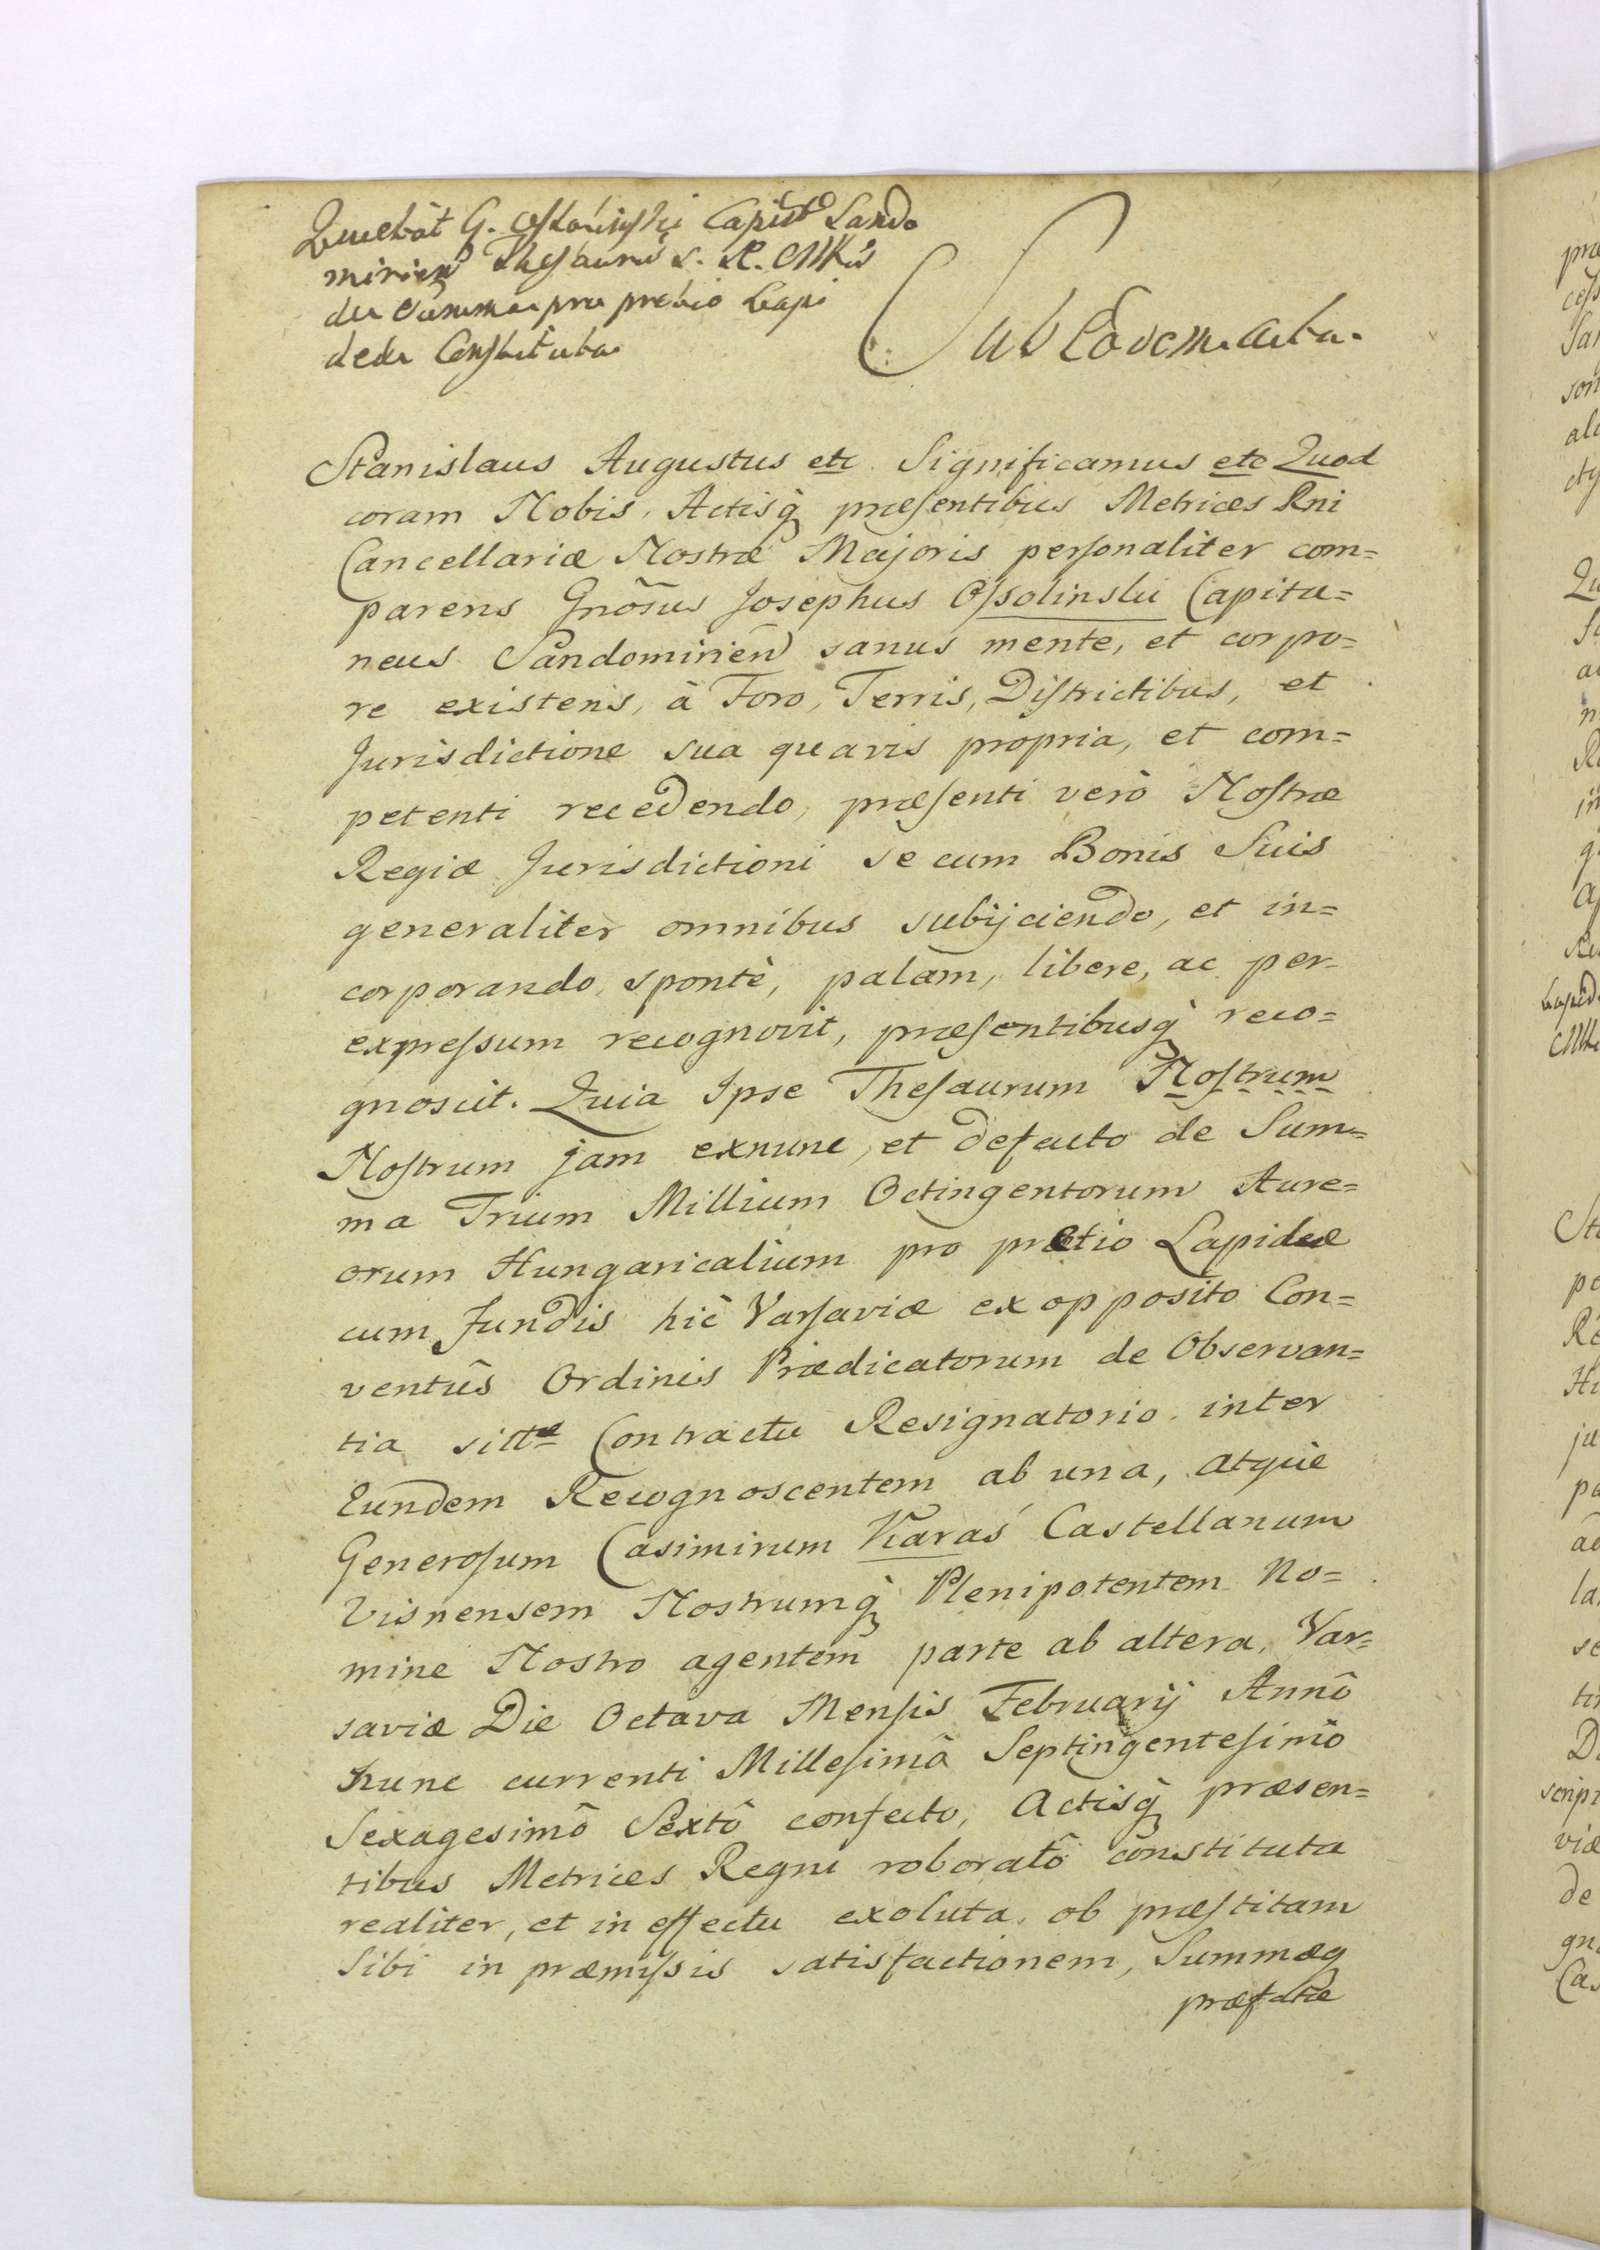 Quietat G. Ossoliński Capits Sando
mirien Thesaurū S. R. Mttis
de Summa pro pretio Lapi
deæ Constituta
Sub Eodem Actu.
Stanislaus Augustus etc. Significamus etc Quod
coram Nobis, Actisq́ præsentibus Metrices Rni
Cancellariæ Nostræ Majoris personaliter com=
parens Gnosus Josephus Ossolinski Capita=
neus Sandomirien sanus mente, et corpo=
re existens, à Foro, Terris, Districtibus, et
Jurisdictione sua quavis propria, et com=
petenti recedendo, præsenti verò Nostræ
Regiæ Jurisdictioni se cum Bonis Suis
generaliter omnibus subijciendo, et in=
corporando, spontè, palàm, libere, ac per
expressum recognovit, præsentibusq́ reco=
gnoscit. Quia Ipse Thesaurum Nostrum
Nostrum jam exnunc, et defacto de Sum=
ma Trium Millium Octingentorum Aure=
orum Hungaricalium pro prætio Lapideæ
cum Fundis hic Varsaviæ ex opposito Con=
ventûs Ordinis Prædicatorum de Observan=
tia sittæ Contractu Resignatorio inter
Eundem Recognoscentem ab una, atque
Generosum Casimirum Karaś Castellanum
Visnensem Nostrumq́ Plenipotentem No=
mine Nostro agentem parte ab altera, Var=
saviæ Die Octava Mensis Februarij Annô
nunc currenti Millesimô Septingentesimô
Sexagesimô Sextô confecto, Actisq́ præsen=
tibus Metrices Regni roboratô constituta
realiter, et in effectu exoluta, ob præstitam
Sibi in præmissis satisfactionem, Summæq
præfatæ